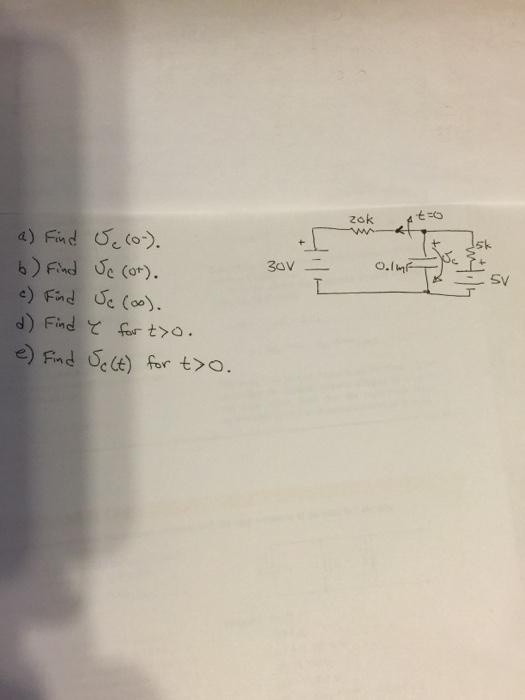 a) Find υc(0-).
b) Find υc(0+).
c) Find υc(∞).
d) Find τ for t>0.
e) Find υc(t) for t>0.
20k
t=0
+
30V
0.1mF
+
υc
5k
+
5V